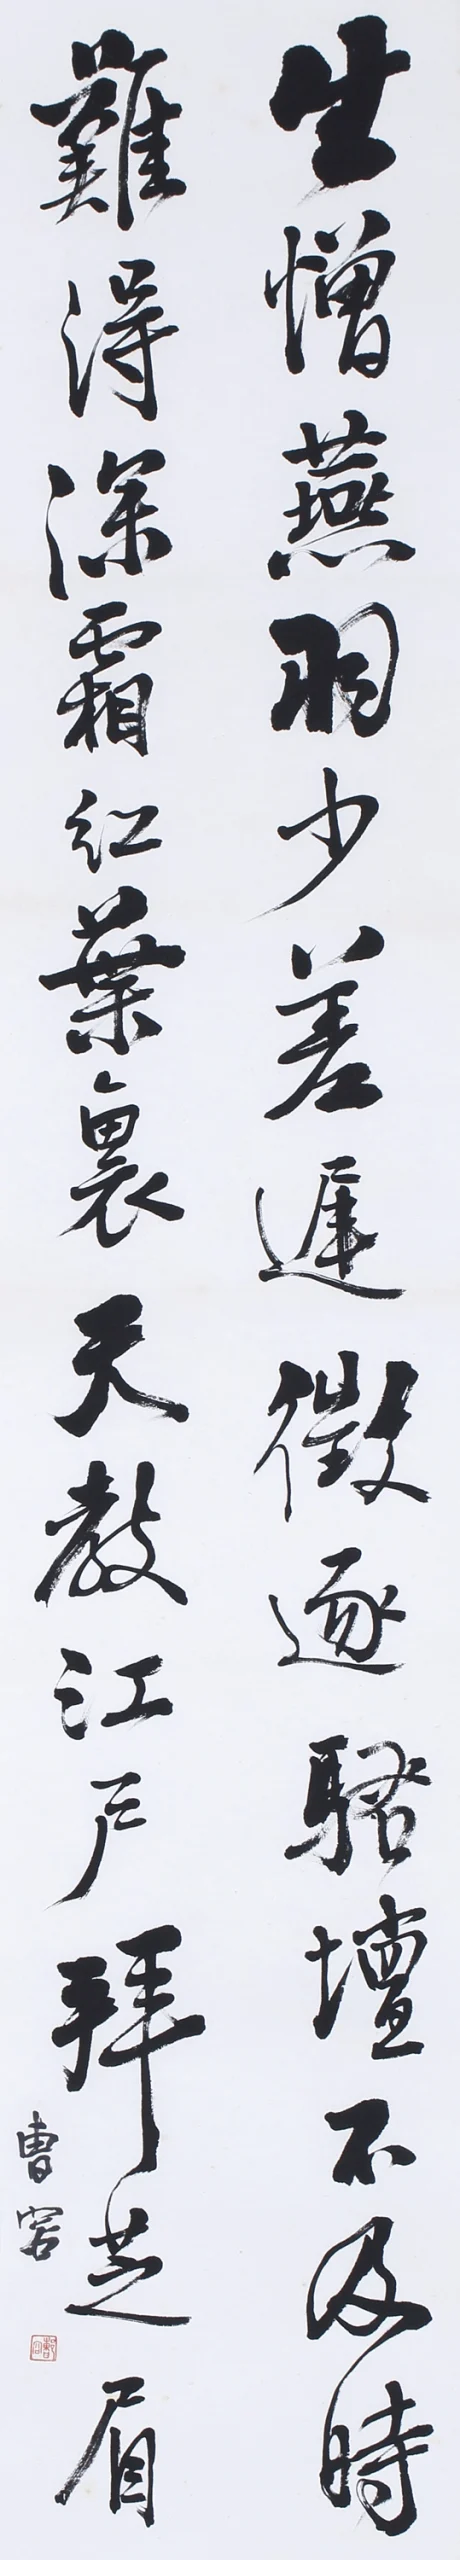 生憎燕羽少差遲徵逐騷壇不及時
難得深霜紅葉裏天教江戶拜芝眉
曹容